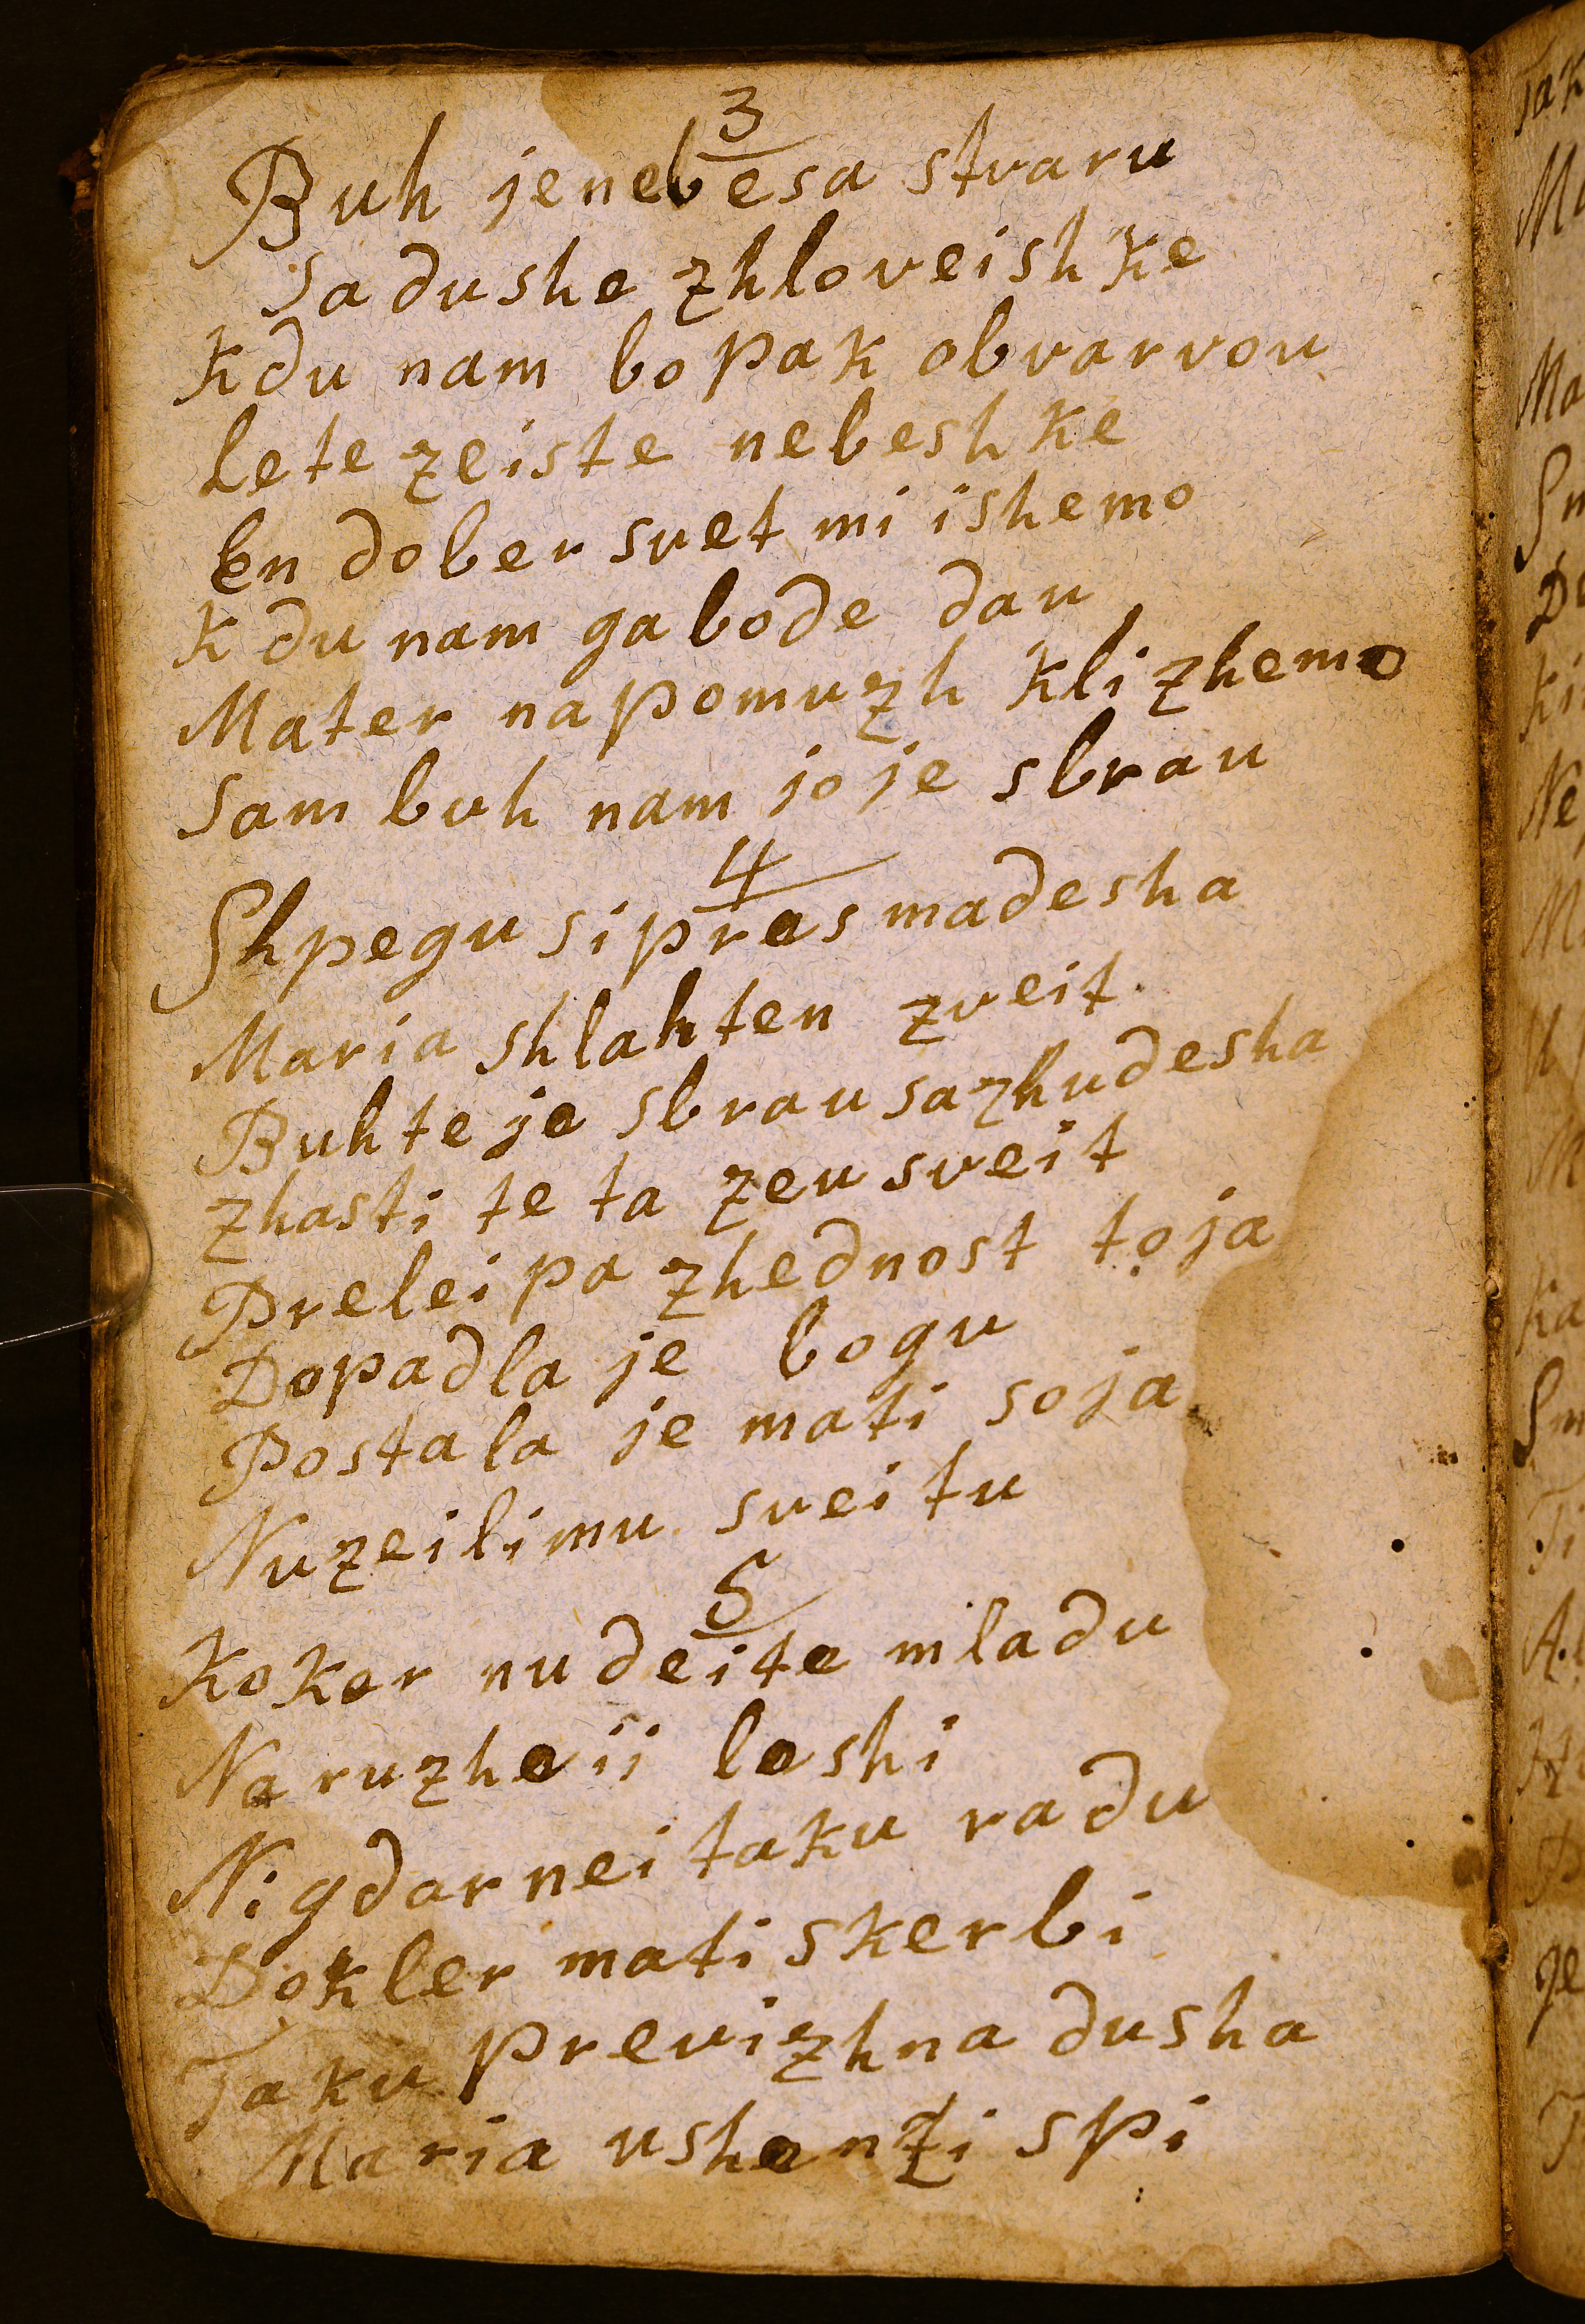 3
Buh jenebesa stvaru
Sa dushe zhloveishke
Kdu nam bo pak obvarvou
Lete zeiste nebeshke
En dober svet mi ishemo
Kdu nam ga bode dau
Mater na pomuzh klizhemo
Sam buh nam jo je sbrau
4
Shpegu si pres madesha
Maria shlahten zveit
Buh te je sbrau sa zhudesha
zhasti te ta zeu sveit
Prelei pa zhednost toja
Dopadla je bogu
Postala je mati soja
Nu zeilimu sveitu
5
Koker nu deite mladu
Na ruzhe ii leshi
Nigdar nei taku radu
Dokler mati skerbi
Taku previzhna dusha
Maria ushenzi spi